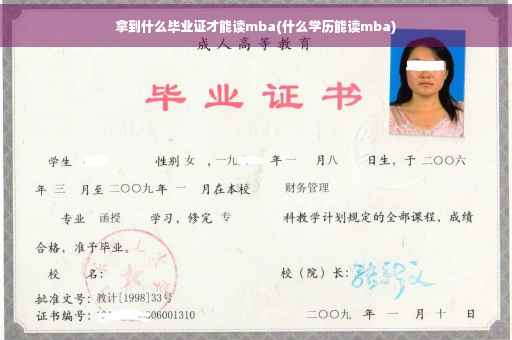 拿到什么毕业证才能读mba(什么学历能读mba)
成人高等教育
毕业证书
学生 性别 女 ,一九 年一 月八 日生，于二〇〇六
年 三 月至二〇〇九年 一 月在本校 财务管理
专业 函授 学习，修完 专 科教学计划规定的全部课程，成绩
合格，准予毕业。
校 名： 校（院）长：
批准文号：教计[1998]33号
证书编号： 06001310 二〇〇九 年 一 月 十 日